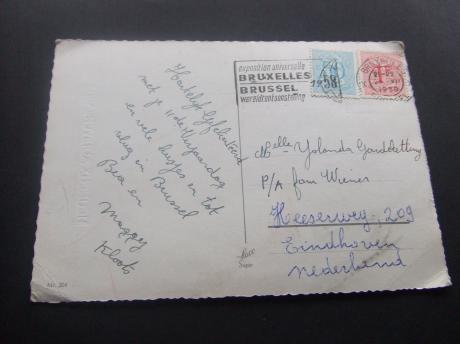 Hartelijk Gefeliciteerd
met je 11de Verjaardag
en vele kusjes en tot
vlug in Brussel
Bea en
Maggy
Kloots
exposition universelle
BRUXELLES
BRUSSEL
wereldtentoonstelling
1958
1F
1958
Melle Yolanda
P/A fam Wiener
Heeserweg, 209
Eindhoven
Nederland
Luxe